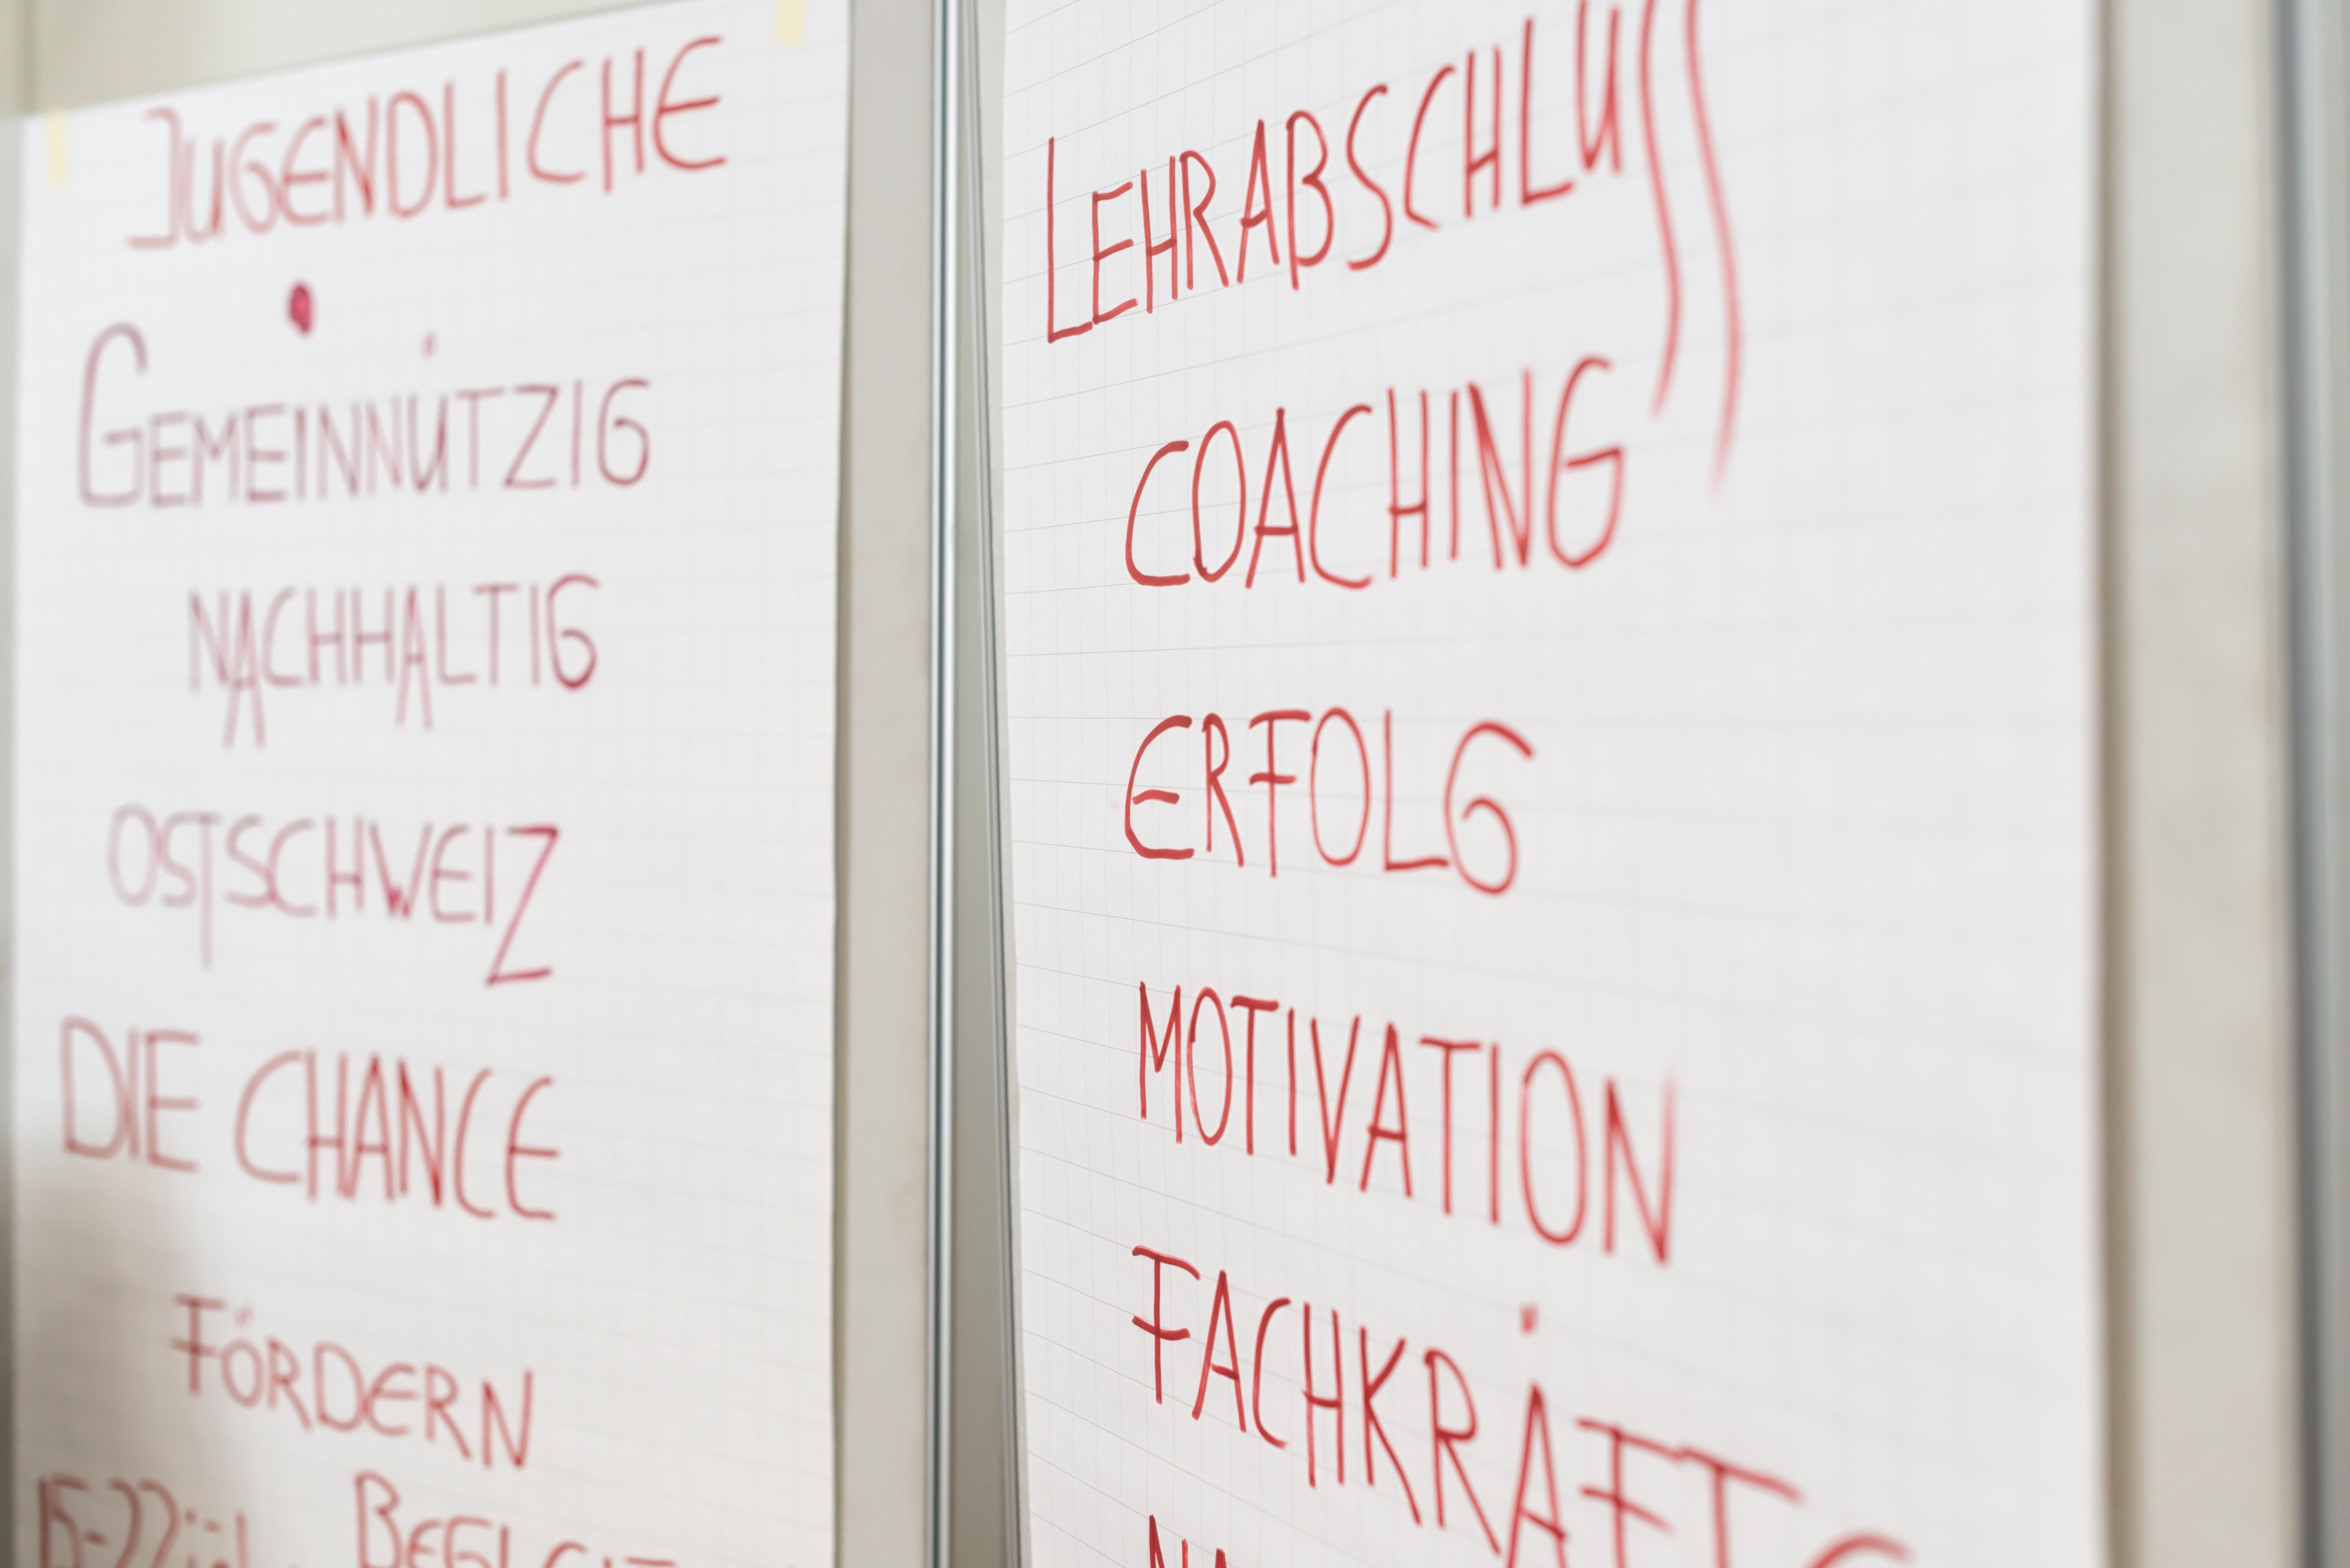 JUGENDLICHE
GEMEINNÜTZIG
NACHHALTIG
OSTSCHWEIZ
DIE CHANCE
FÖRDERN
LEHRABSCHLUSS
COACHING
ERFOLG
MOTIVATION